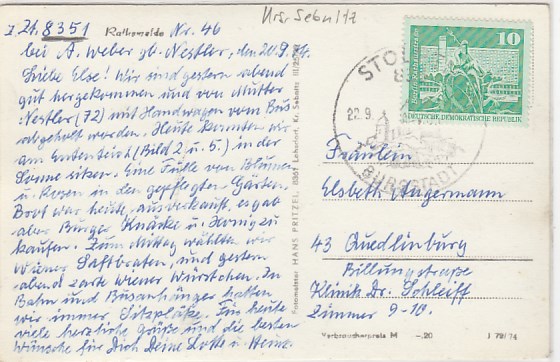 Krs. Sebnitz
z. Zt. 8351 Rathewalde Nr. 46
bei A. Weber gb. Nestler, den 20.9.74.
Liebe Else! Wir sind gestern abend
gut hergekommen und von Mutter
Nestler (72) mit Handwagen vom Bus
abgeholt worden. Heute konnten wir
am Ententeich (Bild 2 u. 5) in der
Sonne sitzen. Eine Fülle von Blumen
u. Rosen in den gepflegten Gärten.
Brot war heute ausverkauft, es gab
aber Burger Knäcke u. Honig zu
kaufen. Zum Mittag wählten wir
Wiener Saftbraten, und gestern
abend zarte Wiener Würstchen. In
Bahn und Busanhänger hatten
wir immer Sitzplätze. Für heute
viele herzliche Grüße und die besten
Wünsche für Dich Deine Lotte u. Heinz.
Fotomeister HANS PRITZEL, 8357 Lohsdorf, Kr. Sebnitz
STOL
22.9.
BURGSTADT
10
DEUTSCHE DEMOKRATISCHE REPUBLIK
Fräulein
Elsbeth Angermann
43 Quedlinburg
Billungstraße
Klinik Dr. Schleiff
Zimmer 9-10.
Verbraucherpreis M -.20
J 79/74